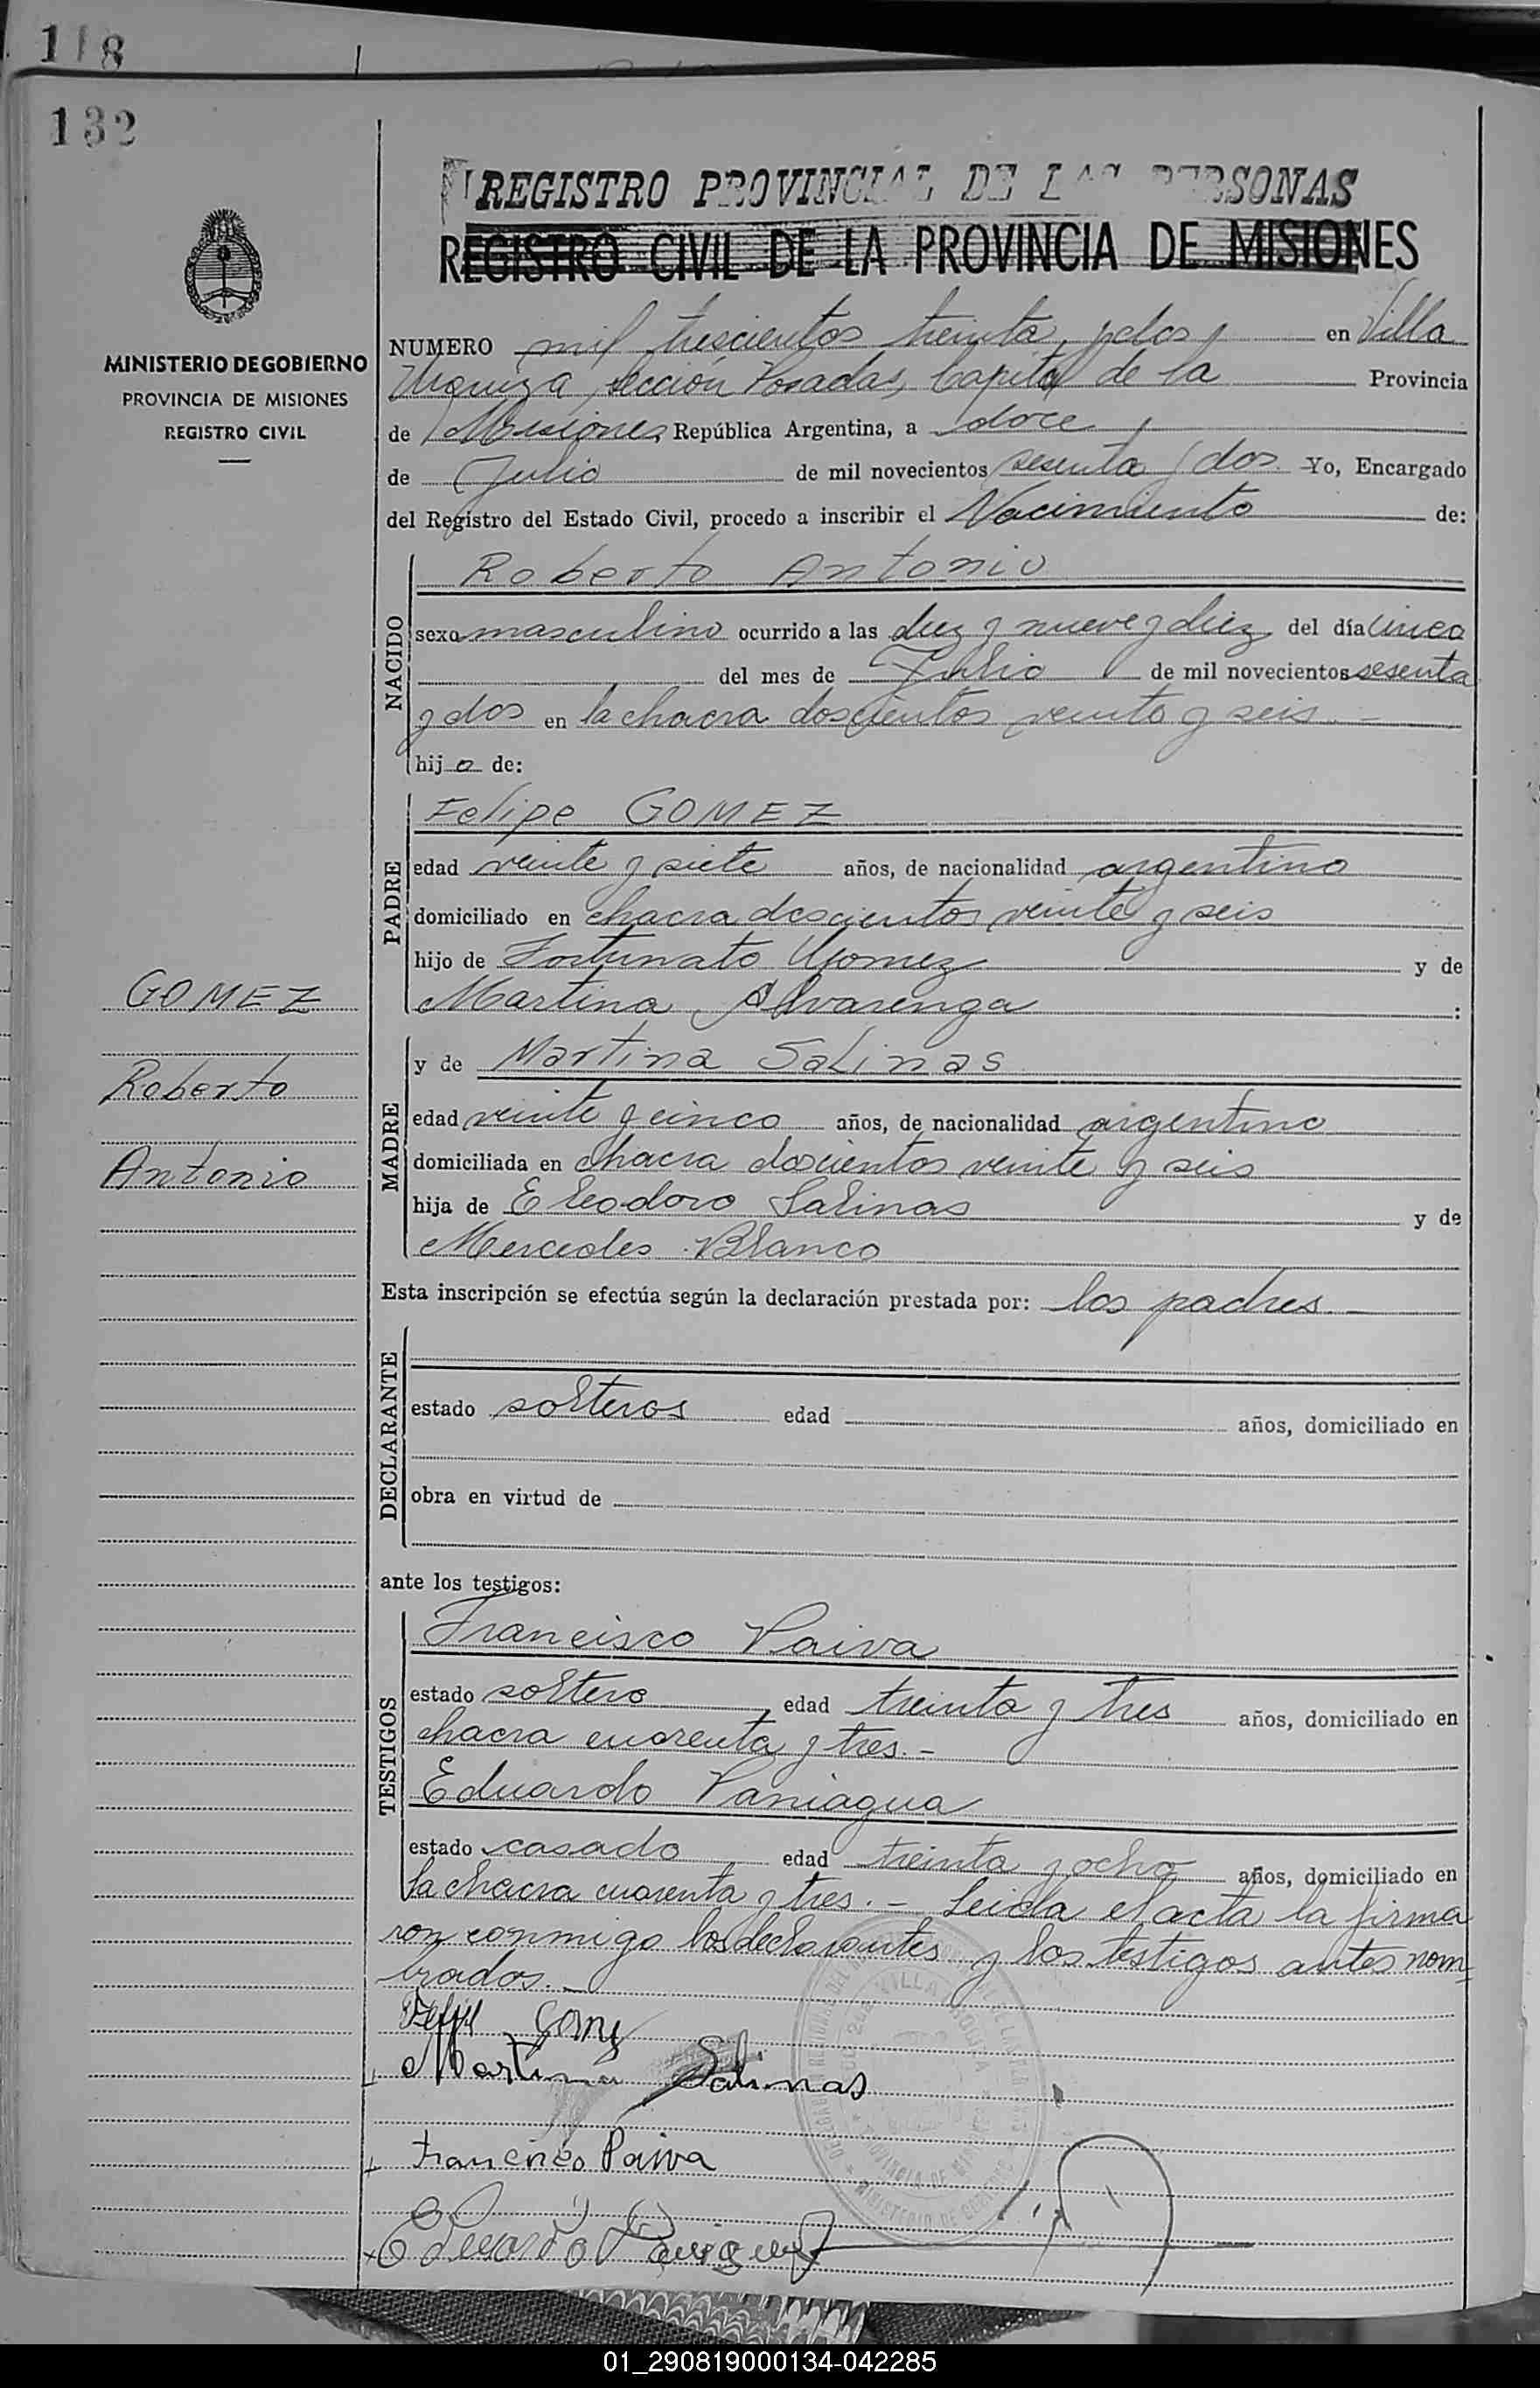 118
132
REGISTRO PROVINCIAL DE LAS PERSONAS
REGISTRO CIVIL DE LA PROVINCIA DE MISIONES
MINISTERIO DE GOBIERNO
PROVINCIA DE MISIONES
REGISTRO CIVIL
NUMERO mil trescientos treinta y dos en Villa
Urquiza, sección Posadas, Capital de la Provincia
de Misiones República Argentina, a doce
de Julio de mil novecientos sesenta y dos Yo, Encargado
del Registro del Estado Civil, procedo a inscribir el Nacimiento de:
NACIDO
Roberto Antonio
sexo masculino ocurrido a las diez y nueve y diez del día cinco
del mes de Julio de mil novecientos sesenta
y dos en la chacra doscientos veinte y seis.-
hijo de:
PADRE
Felipe GOMEZ
edad veinte y siete años, de nacionalidad argentino
domiciliado en chacra doscientos veinte y seis
hijo de Fortunato Gomez y de
Martina Alvarenga :
GOMEZ
Roberto
Antonio
MADRE
y de Martina Salinas
edad veinte y cinco años, de nacionalidad argentina
domiciliada en chacra doscientos veinte y seis
hija de Eleodoro Salinas y de
Mercedes Blanco
Esta inscripción se efectúa según la declaración prestada por: los padres.-
DECLARANTE
estado solteros edad años, domiciliado en
obra en virtud de
ante los testigos:
TESTIGOS
Francisco Paiva
estado soltero edad treinta y tres años, domiciliado en
chacra cuarenta y tres.-
Eduardo Paniagua
estado casado edad treinta y ocho años, domiciliado en
la chacra cuarenta y tres.- Leida el acta la firma
ron conmigo los declarantes y los testigos antes nom
brados.-
Martina Salinas
Francisco Paiva
Eduardo Paniagua
VILLA URQUIZA
PROVINCIA DE MISIONES
MINISTERIO DE GOBIERNO
01_290819000134-042285